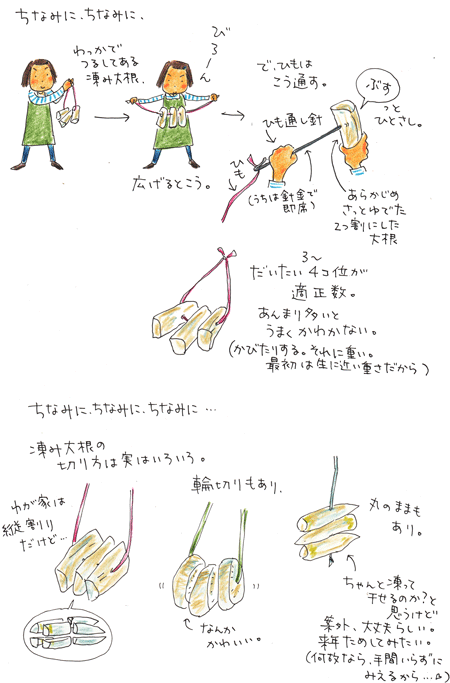 ちなみに、ちなみに、
わっかで
つるしてある
凍み大根、
びろーん
広げるとこう。
で、ひもは
こう通す。
ぶすっと
ひとさし。
ひも通し針
ひも
(うちは針金で
即席)
あらかじめ
さっとゆでた
2つ割にした
大根
3〜
だいたい4コ位が
適正数。
あんまり多いと
うまくかわかない。
(かびたりする。それに重い。
最初は生に近い重さだから)
ちなみに、ちなみに、ちなみに…
凍み大根の
切り方は実はいろいろ。
わが家は
縦割り
だけど…
輪切りもあり、
なんか
かわいい。
丸のままも
あり。
ちゃんと凍って
干せるのか?と
思うけど
案外、大丈夫らしい。
来年ためしてみたい。
(何故なら、手間いらずに
みえるから…)